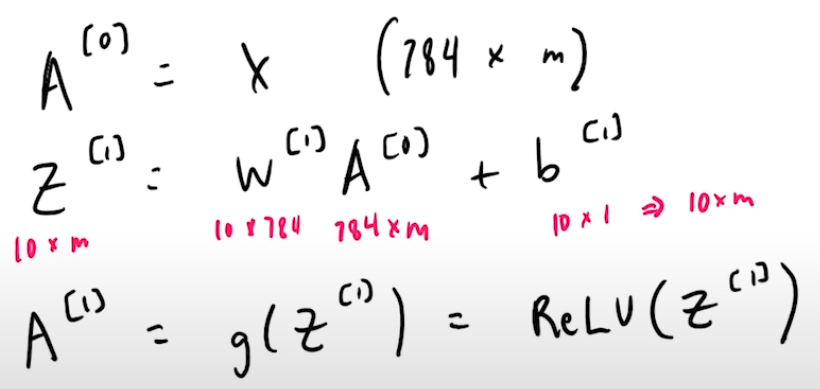 A^[0] = X (784 x m)
Z^[1] = W^[1] A^[0] + b^[1]
10 x m 10 x 784 784 x m 10 x 1 ⇒ 10 x m
A^[1] = g(Z^[1]) = ReLU(Z^[1])